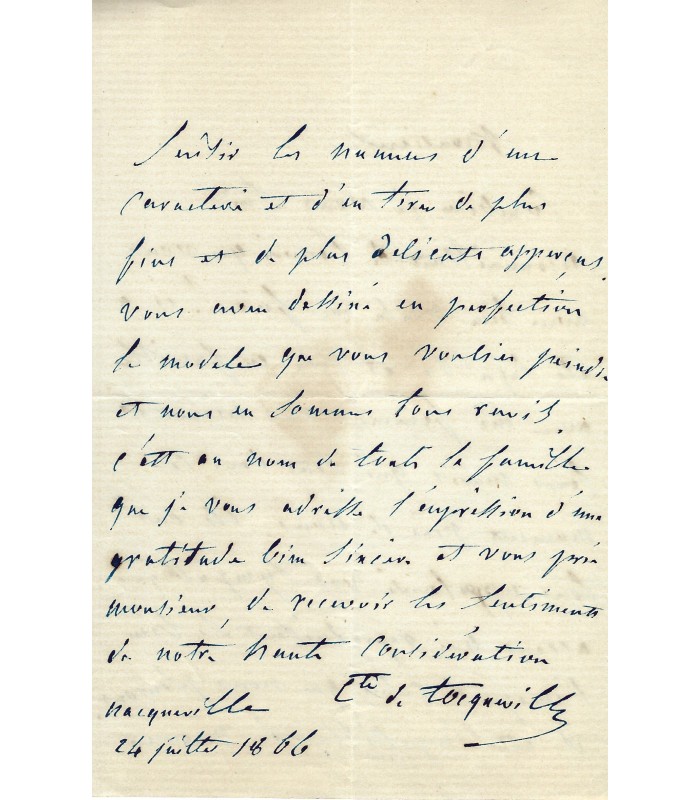 Sentir les nuances d'un
caractère et d'en tirer de plus
fins et de plus délicats apperçus
vous avez dessiné en perfection
le modele que vous vouliez peindre
et nous en sommes tous ravis,
c'est au nom de toute la famille
que je vous adresse l'expression d'une
gratitude bien sincère et vous prie
monsieur, de recevoir les sentiments
de notre haute considération
Cte de Tocqueville
nacqueville
24 juillet 1866